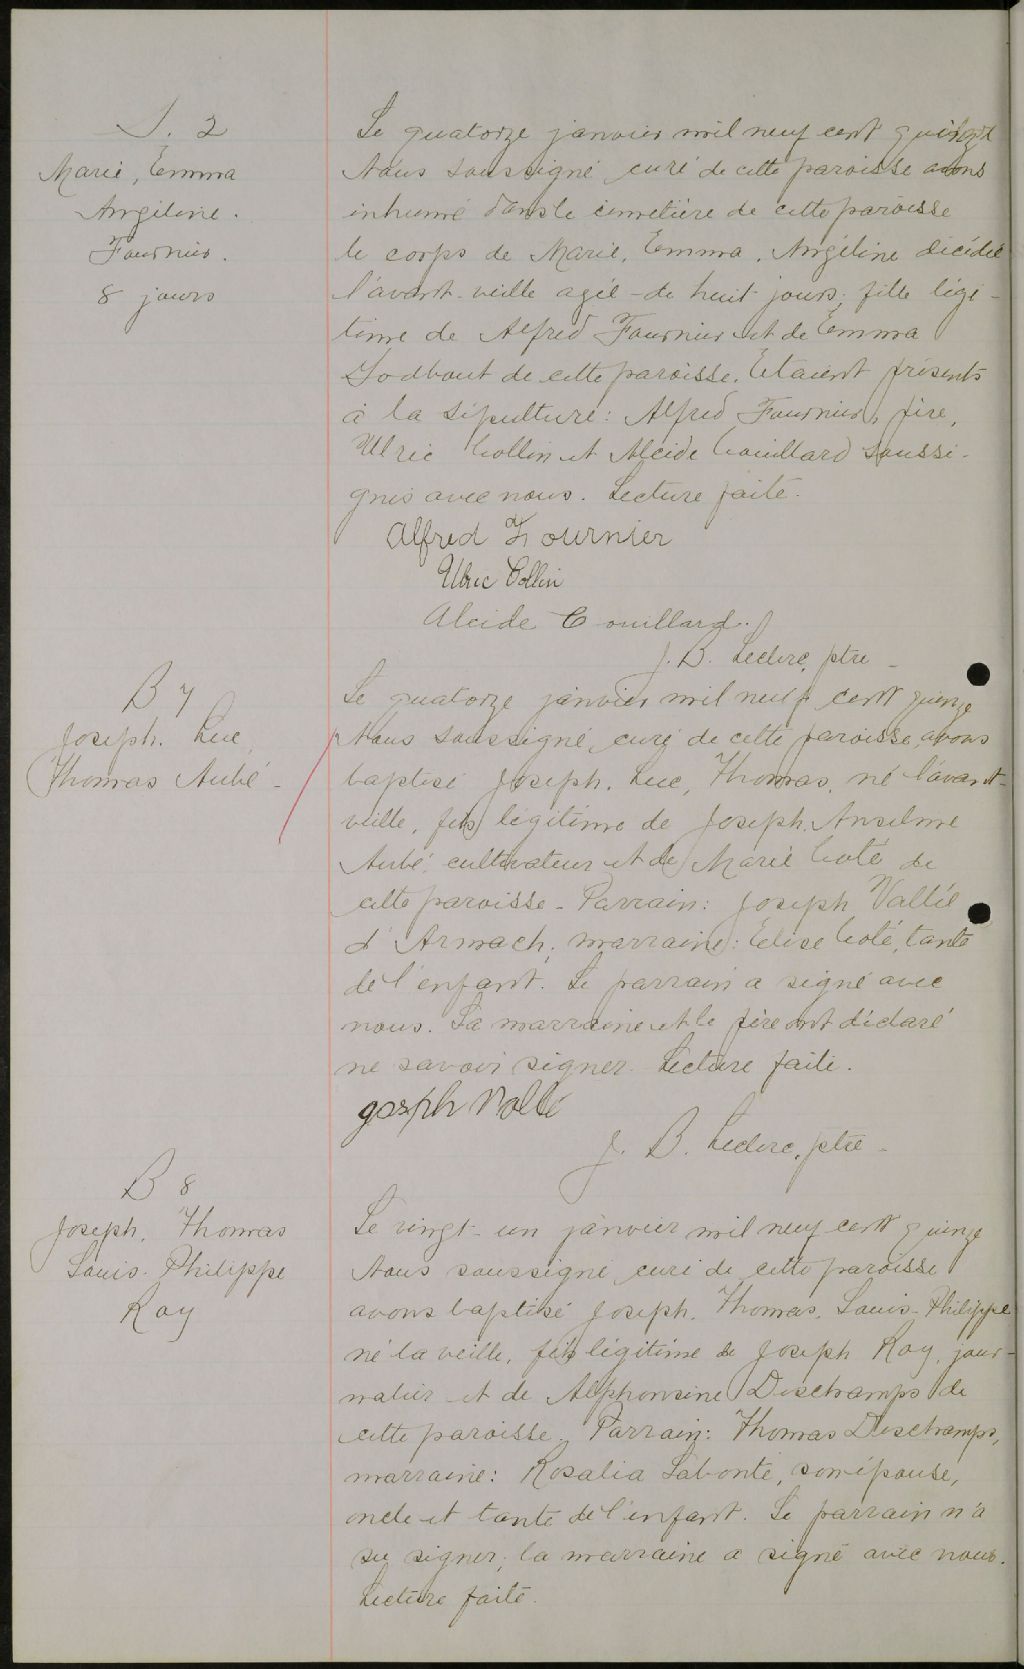 S. 2
Marie, Emma
Angéline.
Fournier.
8 jours
Le quatorze janvier mil neuf cent quinze
Nous soussigné curé de cette paroisse avons
inhumé dans le cimetière de cette paroisse
le corps de Marie, Emma, Angéline décédée
l'avant-veille agée de huit jours, fille légi-
time de Alfred Fournier et de Emma
Godbout de cette paroisse. Etaient présents
à la sépulture: Alfred Fournier, père,
Ulric Collin et Alcide Couillard soussi-
gnés avec nous. Lecture faite.
Alfred Fournier
Ulric Collin
Alcide Couillard.
J. B. Leclerc, ptre -
B 7
Joseph. Luc,
Thomas Aubé -
Le quatorze janvier mil neuf cent quinze
Nous soussigné, curé de cette paroisse avons
baptisé Joseph, Luc, Thomas, né l'avant-
veille, fils légitime de Joseph. Anselme
Aubé, cultivateur et de Marie Coté de
cette paroisse - Parrain: Joseph Vallée
d'Armach; marraine: Elise Coté, tante
de l'enfant. Le parrain a signé avec
nous. La marraine et le père ont déclaré
ne savoir signer. Lecture faite.
Joseph Vallé
J. B. Leclerc, ptre -
B 8
Joseph, Thomas
Louis-Philippe
Roy
Le vingt-un janvier mil neuf cent quinze
Nous soussigné curé de cette paroisse
avons baptisé Joseph, Thomas, Louis-Philippe
né la veille, fils légitime de Joseph Roy, jour-
nalier et de Alphonsine Deschamps de
cette paroisse. Parrain: Thomas Deschamps,
marraine: Rosalia Labonté, son épouse,
oncle et tante de l'enfant. Le parrain n'a
su signer; la marraine a signé avec nous.
Lecture faite.